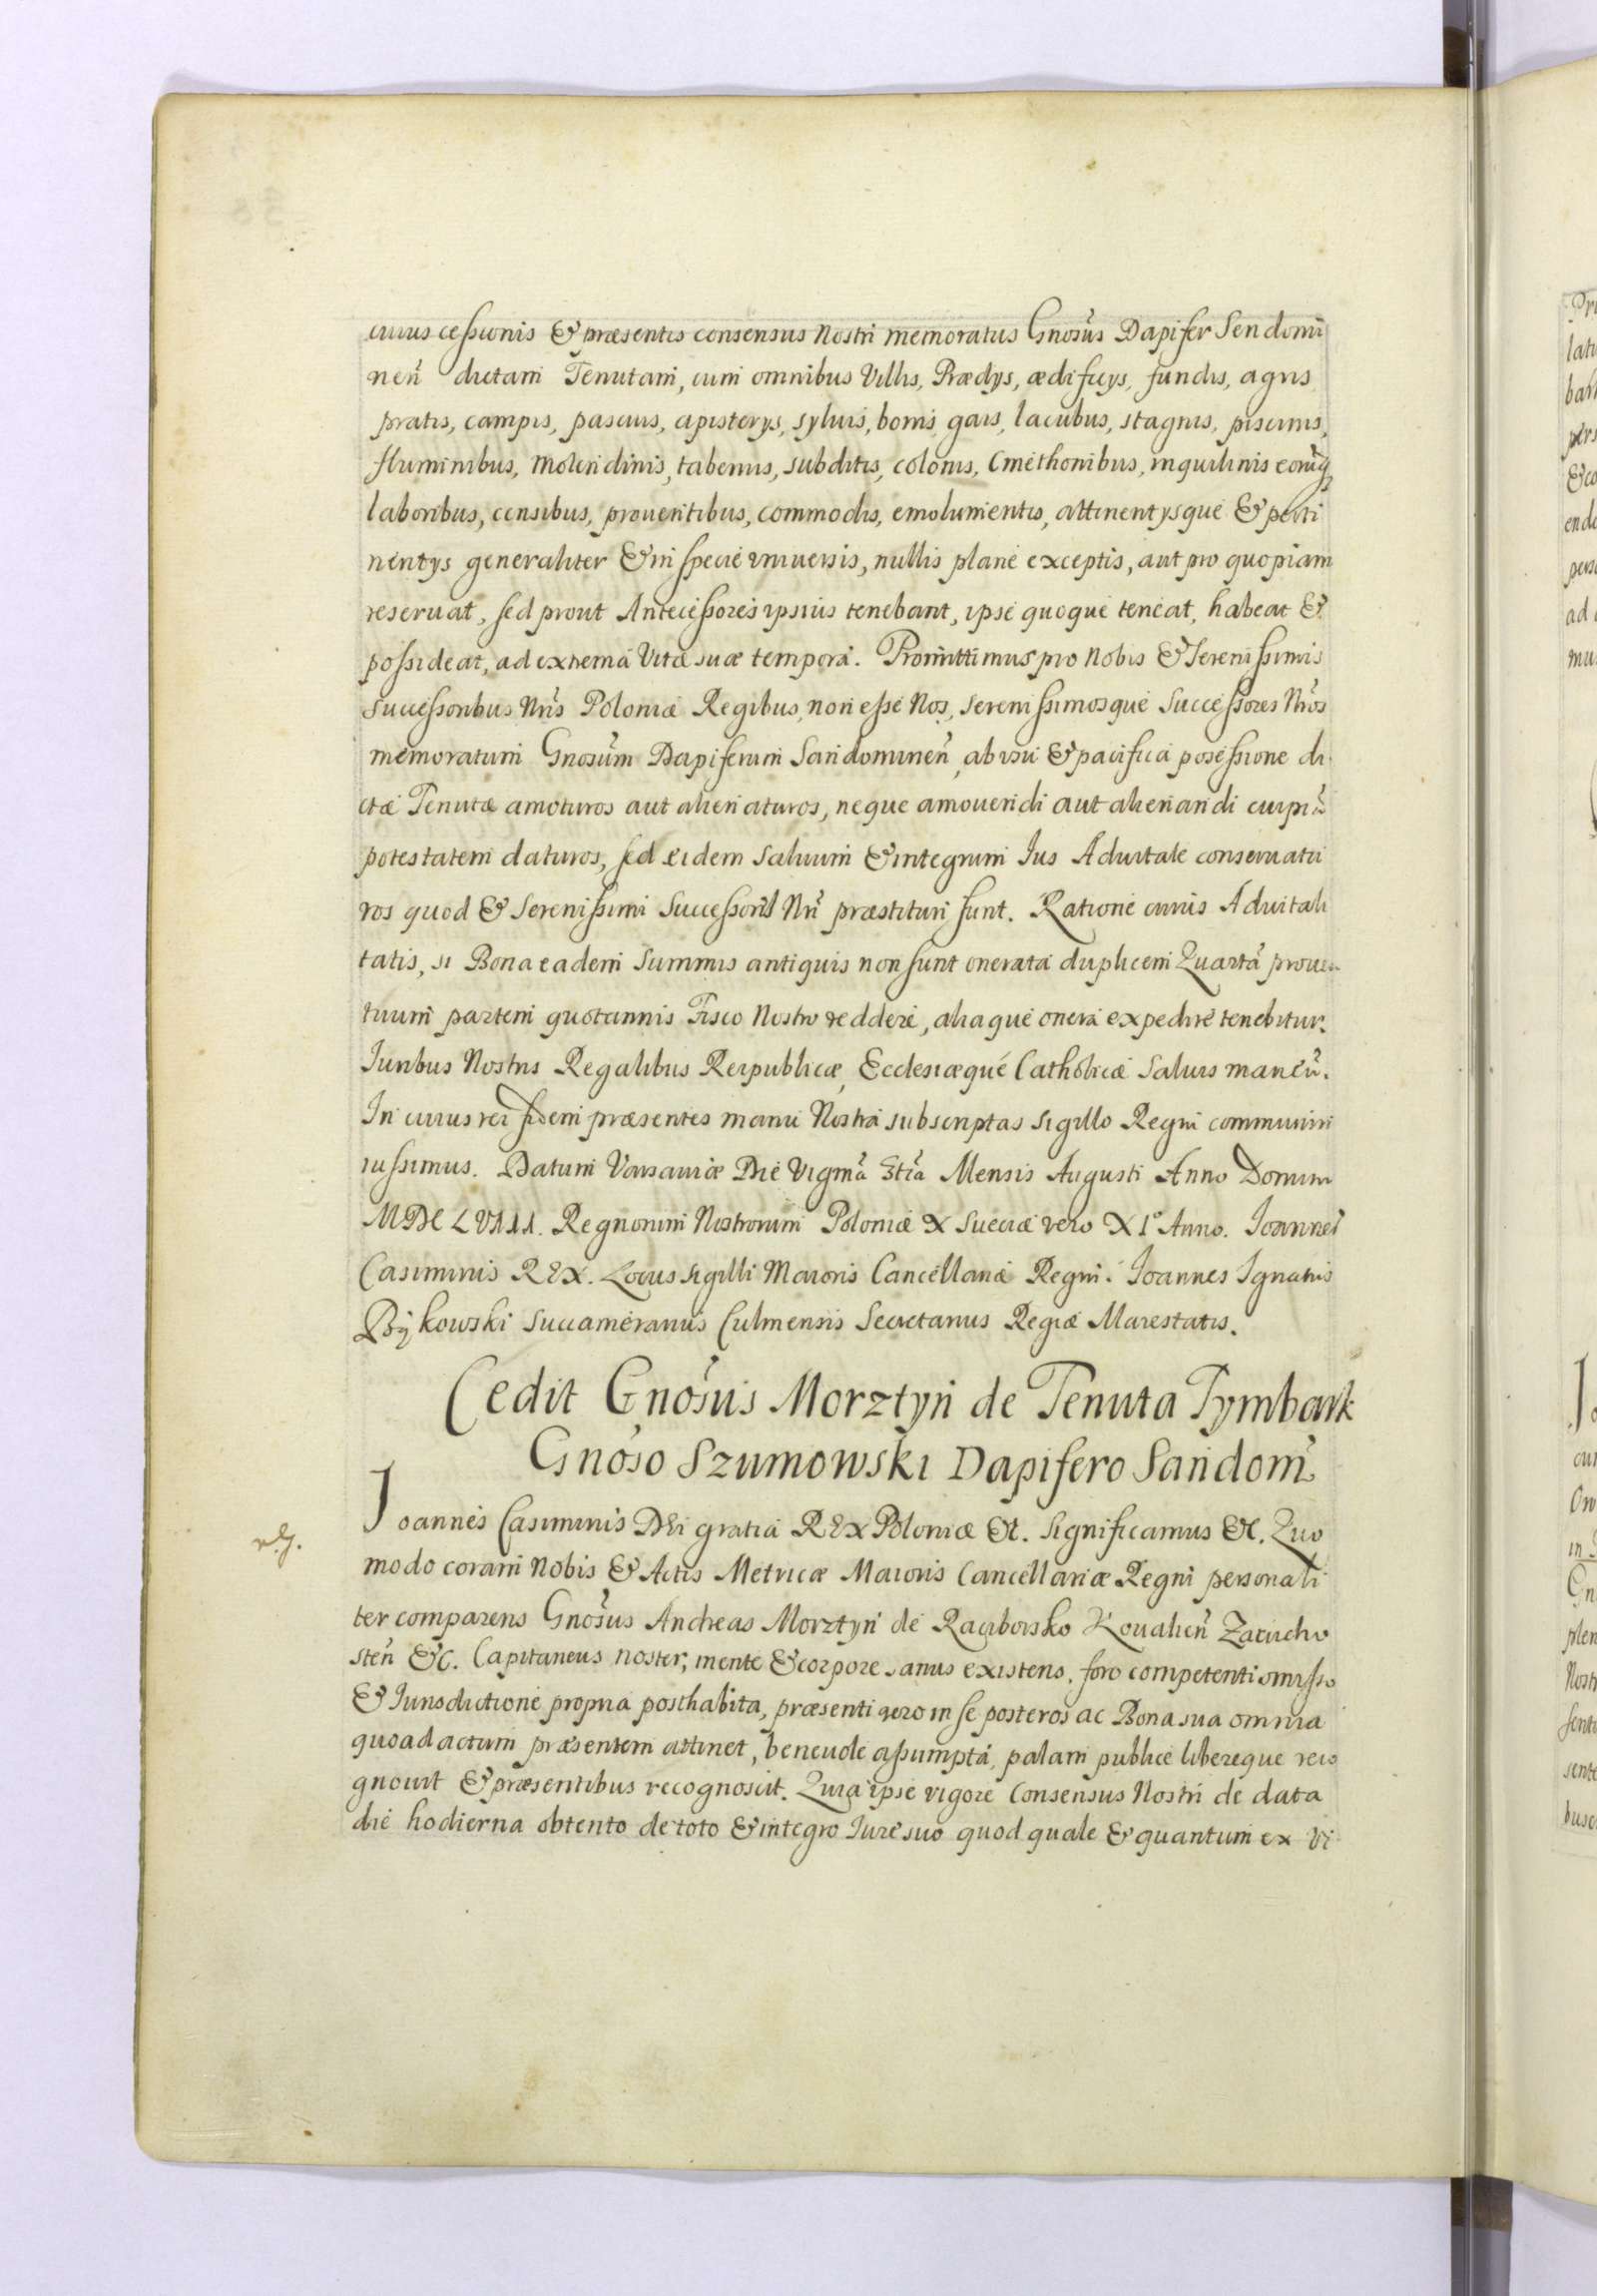 cuius cessionis & præsentis consensus Nostri memoratus Gnosus Dapifer Sendomi
nen dictam Tenutam, cum omnibus Villis, Prædys, ædificys, fundis, agris
pratis, campis, pascuis, apisterys, syluis, borris, gais, lacubus, stagnis, piscinis,
fluminibus, Molendinis, tabernis, subditis, colonis, Cmethonibus, inquilinis eorūq
laboribus, censibus, prouentibus, commodis, emolumentis, attinentysque & perti
nentys generaliter & in specie vniuersis, nullis plane exceptis, aut pro quopiam
reseruat, sed prout Antecessores ipsius tenebant, ipse quoque teneat, habeat &
possideat, ad extrema Vitæ suæ tempora. Promittimus pro Nobis & Serenissimis
Successoribus Nris Poloniæ Regibus, non esse Nos, serenissimosque Successores Nros
memoratum Gnosum Dapiferum Sandominen, ab vsu & pacifica posessione di
ctæ Tenutæ amoturos aut alienaturos, neque amouendi aut alienandi cuipiā
potestatem daturos, sed eidem saluum & integrum Ius Aduitale conseruatu
ros quod & Serenissimi Successores Nri præstituri sunt. Ratione cuius Aduitali
tatis, si Bona eadem Summis antiquis non sunt onerata duplicem Quartā prouen
tuum partem quotannis Fisco Nostro reddere, aliaque onera expedire tenebitur.
Iuribus Nostris Regalibus Reipublicæ, Ecclesiæque Catholicæ Saluis manen.
In cuius rei fidem præsentes manu Nostra subscriptas sigillo Regni communiri
iussimus. Datum Varsauiæ Die Vigmā 3tiā Mensis Augusti Anno Domini
MDCLVIII. Regnorum Nostrorum Poloniæ X Sueciæ vero XI° Anno. Ioannes
Casimirus REX. Locus sigilli Maioris Cancellariæ Regni. Ioannes Ignatius
Bÿkowski Succamerarius Culmensis Secretarius Regiæ Maiestatis.
Cedit Gnosus Morztyn de Tenuta Tymbark
Gnoso Szumowski Dapifero Sandom
Ioannes Casimirus DEi gratia REX Poloniæ &c. Significamus &c. Quo
modo coram Nobis & Actis Metricæ Maioris Cancellariæ Regni personali
ter comparens Gnosus Andreas Morztyn de Raciborsko Koualien Zatucho
sten &c. Capitaneus noster, mente & corpore sanus existens, foro competenti omisso
& Iurisdictione propria posthabita, præsenti vero in se posteros ac Bona sua omnia
quoad actum præsentem attinet, beneuole assumpta, palam publice libereque reco
gnouit & præsentibus recognoscit. Quia ipse vigore Consensus Nostri de data
die hodierna obtento de toto & integro Iure suo quod quale & quantum ex vi